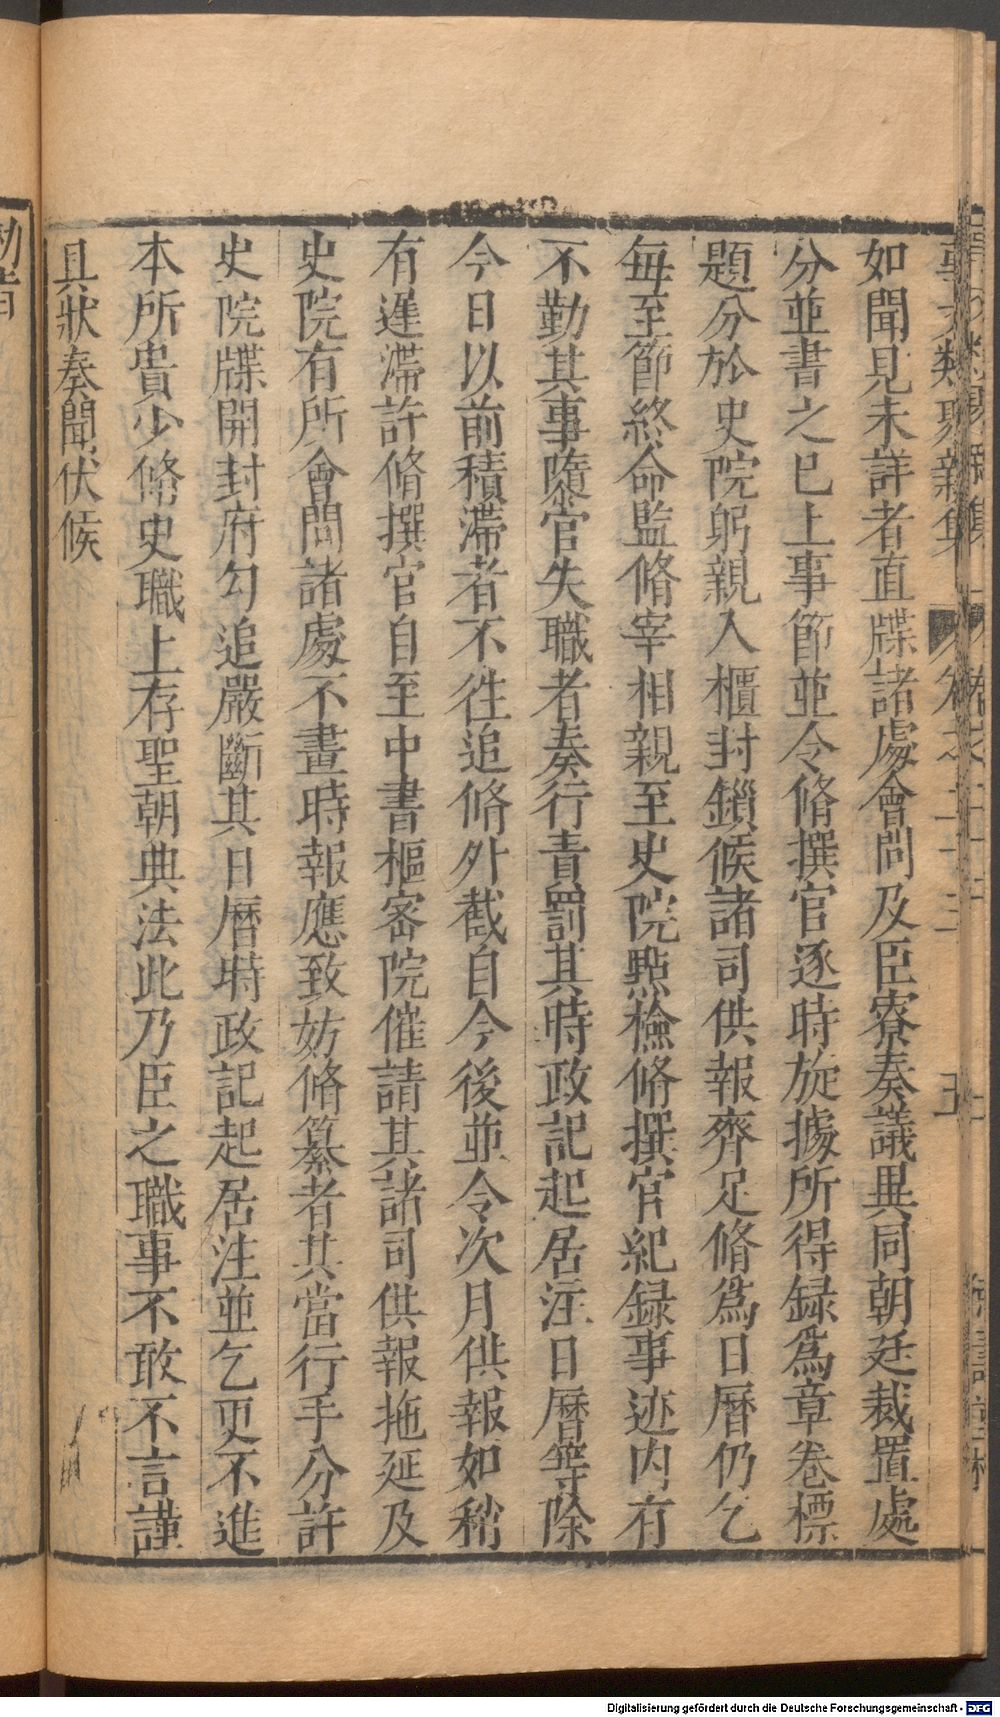 事文類聚新集 卷之二十三 五
如聞見未詳者直牒諸處會問及臣寮奏議異同朝廷裁置處
分並書之已上事節並令脩撰官逐時旋據所得録爲章卷標
題分於史院躬親入櫃封鎖候諸司供報齊足脩爲日曆仍乞
每至節終命監脩宰相親至史院㸃檢脩撰官紀録事迹内有
不勤其事隳官失職者奏行責罰其時政記起居注日曆等除
今日以前積滯者不徃追脩外截自今後並令次月供報如稍
有遲滯許脩撰官自至中書樞密院催請其諸司供報拖延及
史院有所會問諸處不畫時報應致妨脩纂者其當行手分許
史院牒開封府勾追嚴斷其日曆時政記起居注並乞更不進
本所貴少脩史職上存聖朝典法此乃臣之職事不敢不言謹
具狀奏聞伏候
勑旨
Digitalisierung gefördert durch die Deutsche Forschungsgemeinschaft - DFG